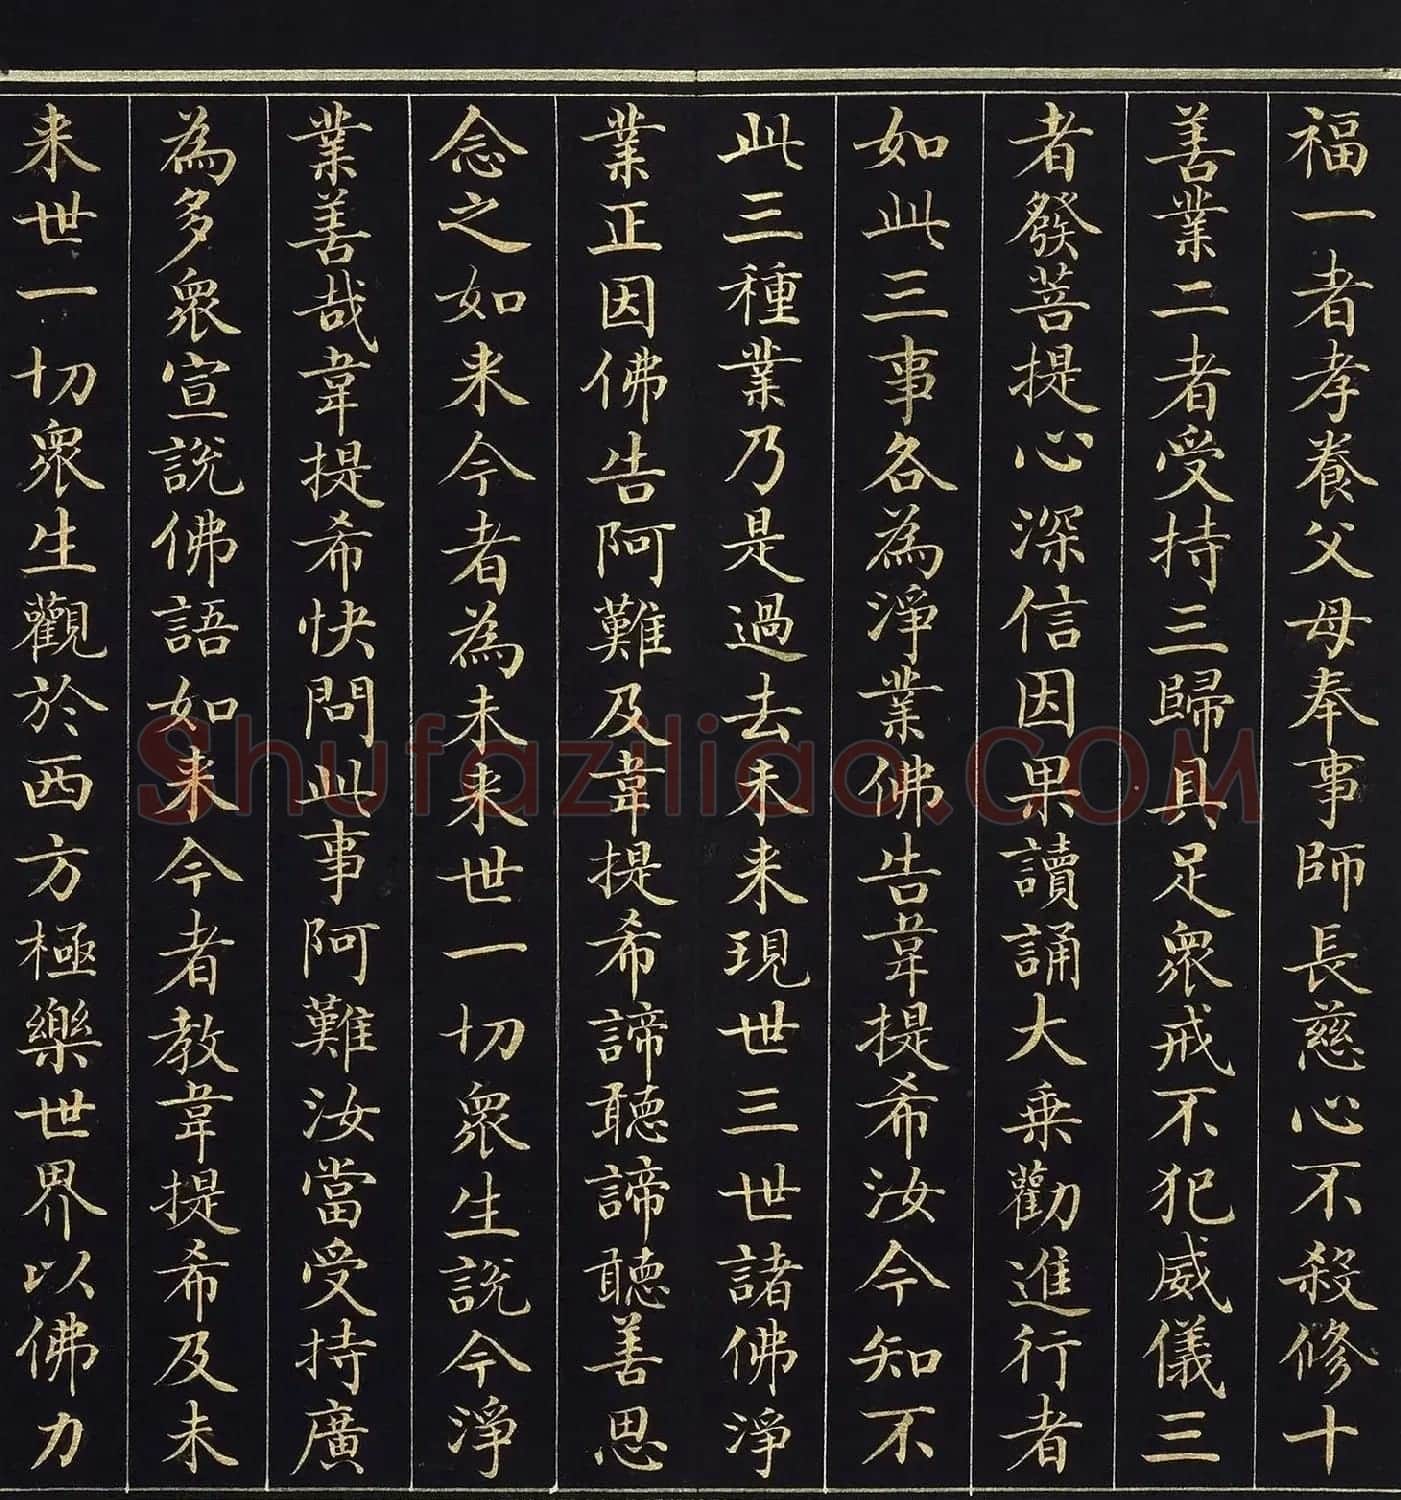 福一者孝養父母奉事師長慈心不殺修十
善業二者受持三歸具足眾戒不犯威儀三
者發菩提心深信因果讀誦大乗勸進行者
如此三事各為淨業佛告韋提希汝今知不
此三種業乃是過去未来現世三世諸佛淨
業正因佛告阿難及韋提希諦聽諦聽善思
念之如来今者為未来世一切眾生說今淨
業善哉韋提希快問此事阿難汝當受持廣
為多眾宣說佛語如来今者教韋提希及未
来世一切眾生觀於西方極樂世界以佛力
Shufaziliao.COM